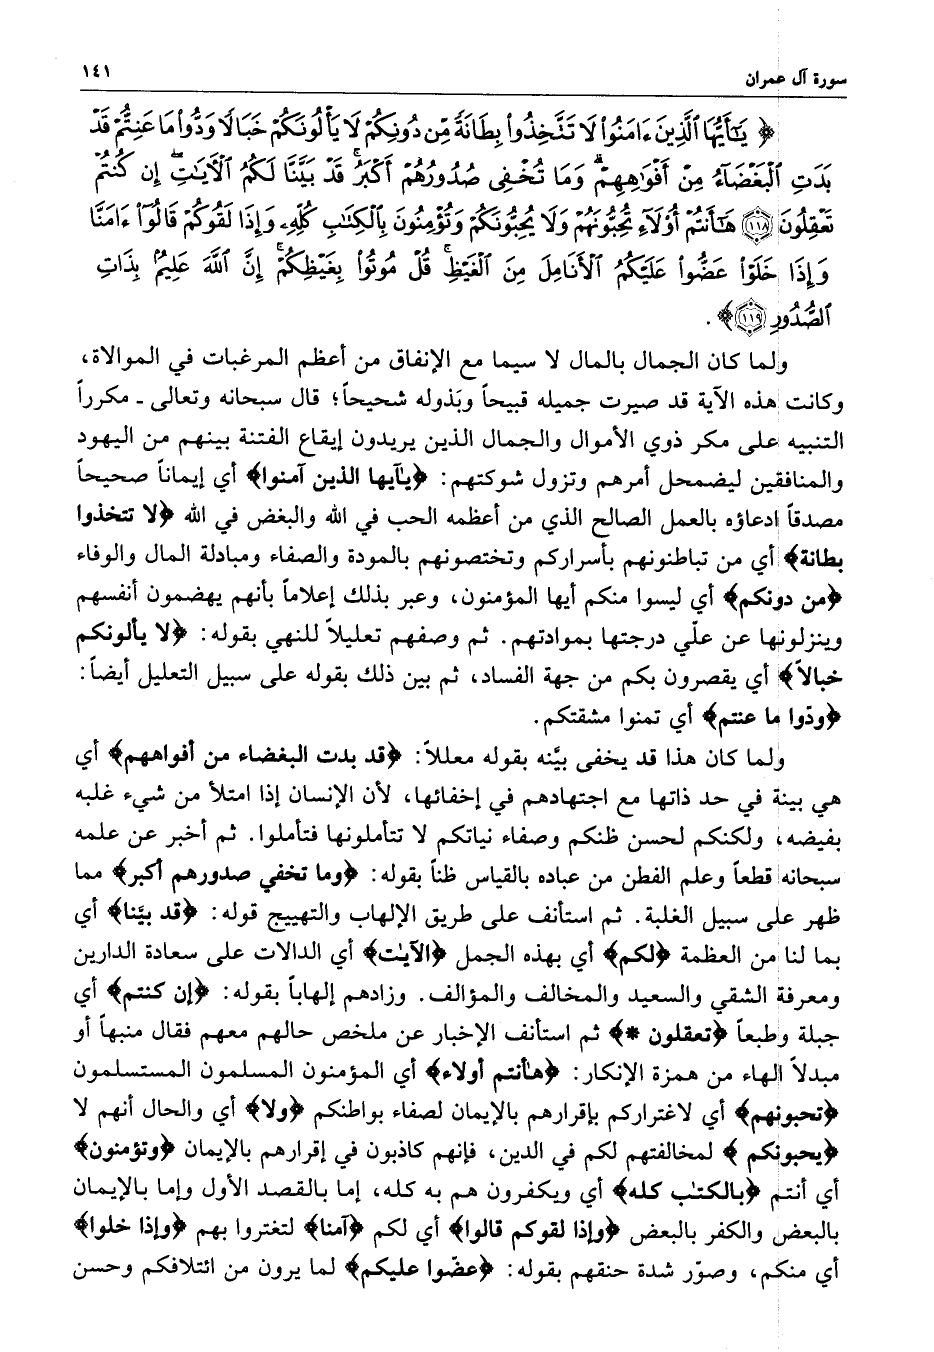 سورة آل عمران ١٤١
﴿ يَـٰٓأَيُّهَا ٱلَّذِينَ ءَامَنُوا۟ لَا تَتَّخِذُوا۟ بِطَانَةً مِّن دُونِكُمْ لَا يَأْلُونَكُمْ خَبَالًا وَدُّوا۟ مَا عَنِتُّمْ قَدْ
بَدَتِ ٱلْبَغْضَآءُ مِنْ أَفْوَٰهِهِمْ ۚ وَمَا تُخْفِى صُدُورُهُمْ أَكْبَرُ ۚ قَدْ بَيَّنَّا لَكُمُ ٱلْـَٔايَـٰتِ ۖ إِن كُنتُمْ
تَعْقِلُونَ ١١٨ هَـٰٓأَنتُمْ أُو۟لَآءِ تُحِبُّونَهُمْ وَلَا يُحِبُّونَكُمْ وَتُؤْمِنُونَ بِٱلْكِتَـٰبِ كُلِّهِۦ وَإِذَا لَقُوكُمْ قَالُوٓا۟ ءَامَنَّا
وَإِذَا خَلَوْا۟ عَضُّوا۟ عَلَيْكُمُ ٱلْأَنَامِلَ مِنَ ٱلْغَيْظِ ۚ قُلْ مُوتُوا۟ بِغَيْظِكُمْ ۗ إِنَّ ٱللَّهَ عَلِيمٌۢ بِذَاتِ
ٱلصُّدُورِ ١١٩﴾ .
ولما كان الجمال بالمال لا سيما مع الإنفاق من أعظم المرغبات في الموالاة،
وكانت هذه الآية قد صيرت جميله قبيحاً وبَذوله شحيحاً؛ قال سبحانه وتعالى ـ مكرراً
التنبيه على مكر ذوي الأموال والجمال الذين يريدون إيقاع الفتنة بينهم من اليهود
والمنافقين ليضمحل أمرهم وتزول شوكتهم: ﴿يآيها الذين آمنوا﴾ أي إيماناً صحيحاً
مصدقاً ادعاؤه بالعمل الصالح الذي من أعظمه الحب في الله والبغض في الله ﴿لا تتخذوا
بطانة﴾ أي من تباطنونهم بأسراركم وتختصونهم بالمودة والصفاء ومبادلة المال والوفاء
﴿من دونكم﴾ أي ليسوا منكم أيها المؤمنون، وعبر بذلك إعلاماً بأنهم يهضمون أنفسهم
وينزلونها عن علّي درجتها بموادتهم. ثم وصفهم تعليلاً للنهي بقوله: ﴿لا يألونكم
خبالاً﴾ أي يقصرون بكم من جهة الفساد، ثم بين ذلك بقوله على سبيل التعليل أيضاً:
﴿ودّوا ما عنتم﴾ أي تمنوا مشقتكم.
ولما كان هذا قد يخفى بيَّنه بقوله معللاً: ﴿قد بدت البغضاء من أفواههم﴾ أي
هي بينة في حد ذاتها مع اجتهادهم في إخفائها، لأن الإنسان إذا امتلأ من شيء غلبه
بفيضه، ولكنكم لحسن ظنكم وصفاء نياتكم لا تتأملونها فتأملوا. ثم أخبر عن علمه
سبحانه قطعاً وعلم الفطن من عباده بالقياس ظناً بقوله: ﴿وما تخفي صدورهم أكبر﴾ مما
ظهر على سبيل الغلبة. ثم استأنف على طريق الإلهاب والتهييج قوله: ﴿قد بيَّنا﴾ أي
بما لنا من العظمة ﴿لكم﴾ أي بهذه الجمل ﴿الآيٰت﴾ أي الدالات على سعادة الدارين
ومعرفة الشقي والسعيد والمخالف والمؤالف. وزادهم إلهاباً بقوله: ﴿إن كنتم﴾ أي
جبلة وطبعاً ﴿تعقلون *﴾ ثم استأنف الإخبار عن ملخص حالهم معهم فقال منبهاً أو
مبدلاً الهاء من همزة الإنكار: ﴿هأنتم أولاء﴾ أي المؤمنون المسلمون المستسلمون
﴿تحبونهم﴾ أي لاغتراركم بإقرارهم بالإيمان لصفاء بواطنكم ﴿ولا﴾ أي والحال أنهم لا
﴿يحبونكم﴾ لمخالفتهم لكم في الدين، فإنهم كاذبون في إقرارهم بالإيمان ﴿وتؤمنون﴾
أي أنتم ﴿بالكتٰب كله﴾ أي ويكفرون هم به كله، إما بالقصد الأول وإما بالإيمان
بالبعض والكفر بالبعض ﴿وإذا لقوكم قالوا﴾ أي لكم ﴿آمنا﴾ لتغتروا بهم ﴿وإذا خلوا﴾
أي منكم، وصوّر شدة حنقهم بقوله: ﴿عضّوا عليكم﴾ لما يرون من ائتلافكم وحسن